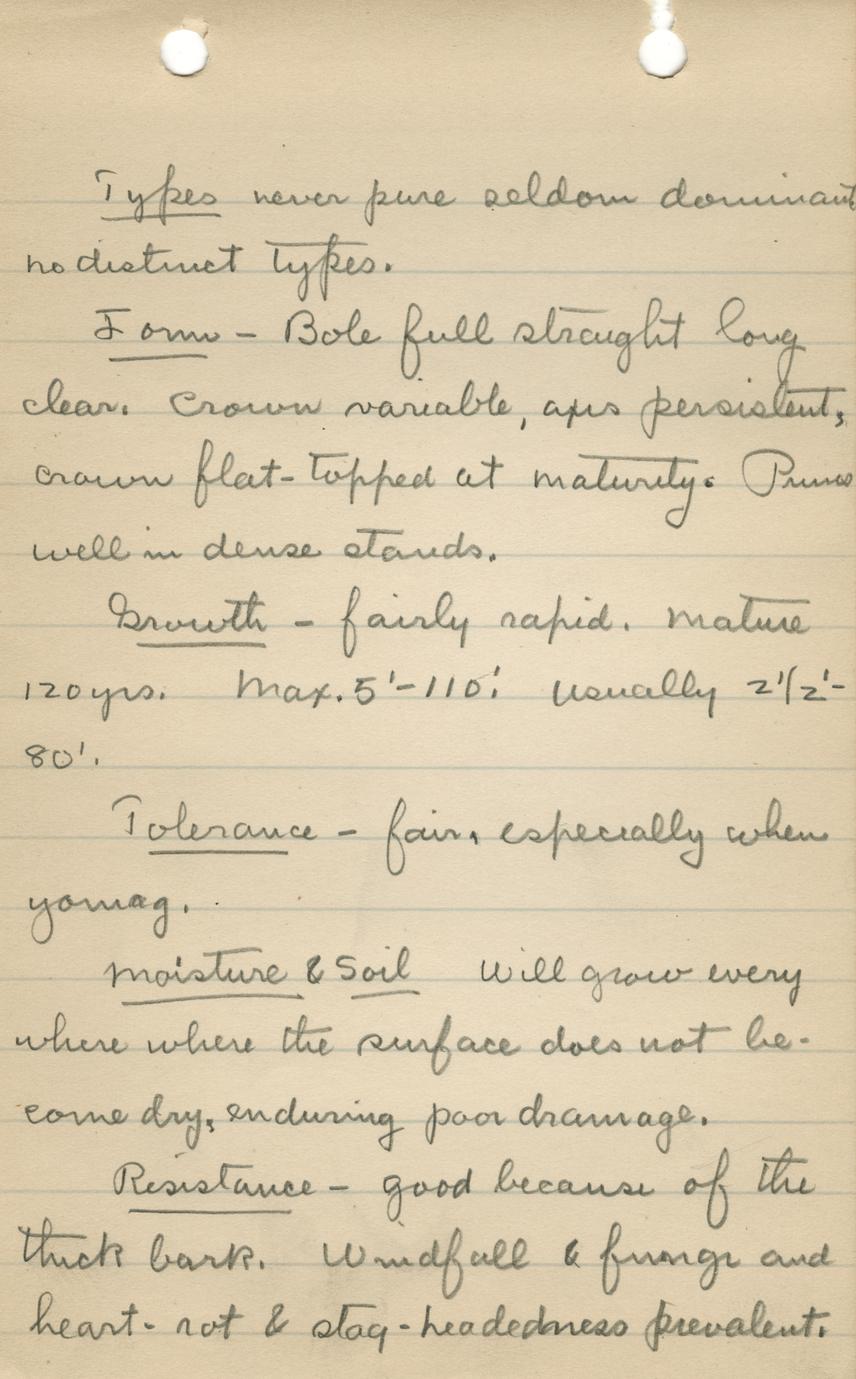 Types never pure seldom dominant
no distinct types.
Form - Bole full straight long
clear. Crown variable, axis persistent,
crown flat-topped at maturity. Prunes
well in dense stands.
Growth - fairly rapid. Mature
120 yrs. Max. 5'-110'. Usually 2 1/2'-
80'.
Tolerance - fair, especially when
young.
Moisture & Soil Will grow every
where where the surface does not be-
come dry, enduring poor drainage.
Resistance - good because of the
thick bark. Windfall & fungi and
heart-rot & stag-headedness prevalent.